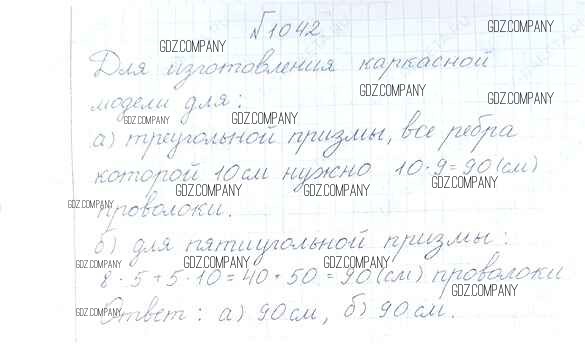 №1042
GDZ.COMPANY
GDZ.COMPANY
Для изготовления каркасной
GDZ.COMPANY
GDZ.COMPANY
модели для:
GDZ.COMPANY
GDZ.COMPANY
а) треугольной призмы, все ребра
которой 10 см нужно 10·9=90(см)
GDZ.COMPANY
GDZ.COMPANY
GDZ.COMPANY
GDZ.COMPANY
проволоки.
б) для пятиугольной призмы:
GDZ.COMPANY
GDZ.COMPANY
GDZ.COMPANY
8·5+5·10=40+50=90(см) проволоки
GDZ.COMPANY
GDZ.COMPANY
Ответ: а) 90 см, б) 90 см.